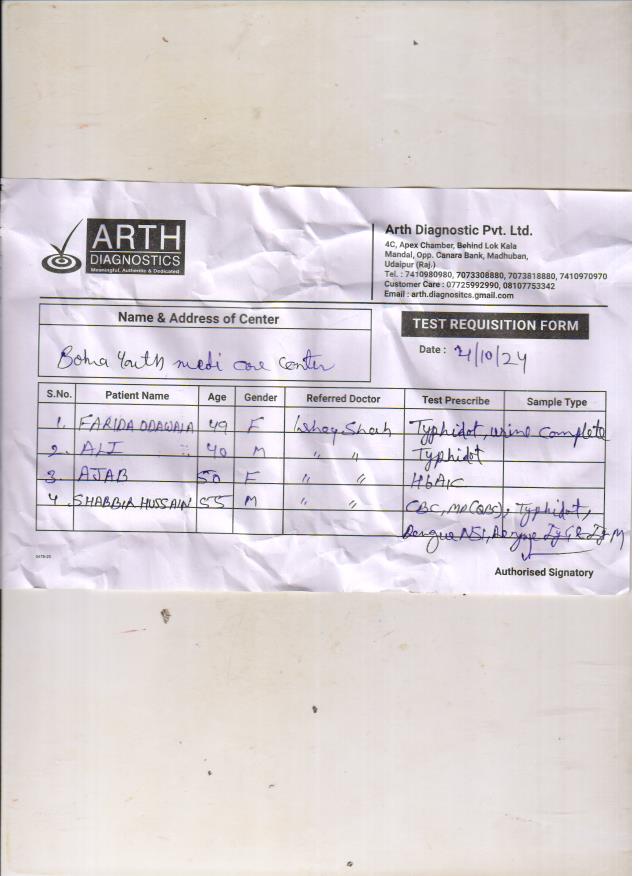 ARTH
DIAGNOSTICS
Meaningful, Authentic & Dedicated
Arth Diagnostic Pvt. Ltd.
4C, Apex Chamber, Behind Lok Kala
Mandal, Opp. Canara Bank, Madhuban,
Udaipur (Raj.)
Tel. : 7410980980, 7073308880, 7073818880, 7410970970
Customer Care : 07725992990, 08107753342
Email : arth.diagnositcs.gmail.com
Name & Address of Center
TEST REQUISITION FORM
Bohra Youth medi care center
Date : 21/10/24
S.No. Patient Name Age Gender Referred Doctor Test Prescribe Sample Type
1. FARIDA ODAWALA 49 F Shah Typhidot, urine complete
2. ALI " 40 M " " Typhidot
3. AJAB 50 F " " HbA1C
4. SHABBIR HUSSAIN 55 M " " CBC, MP(QBC), Typhidot,
Dengue NS1, Dengue IgG & IgM
Authorised Signatory